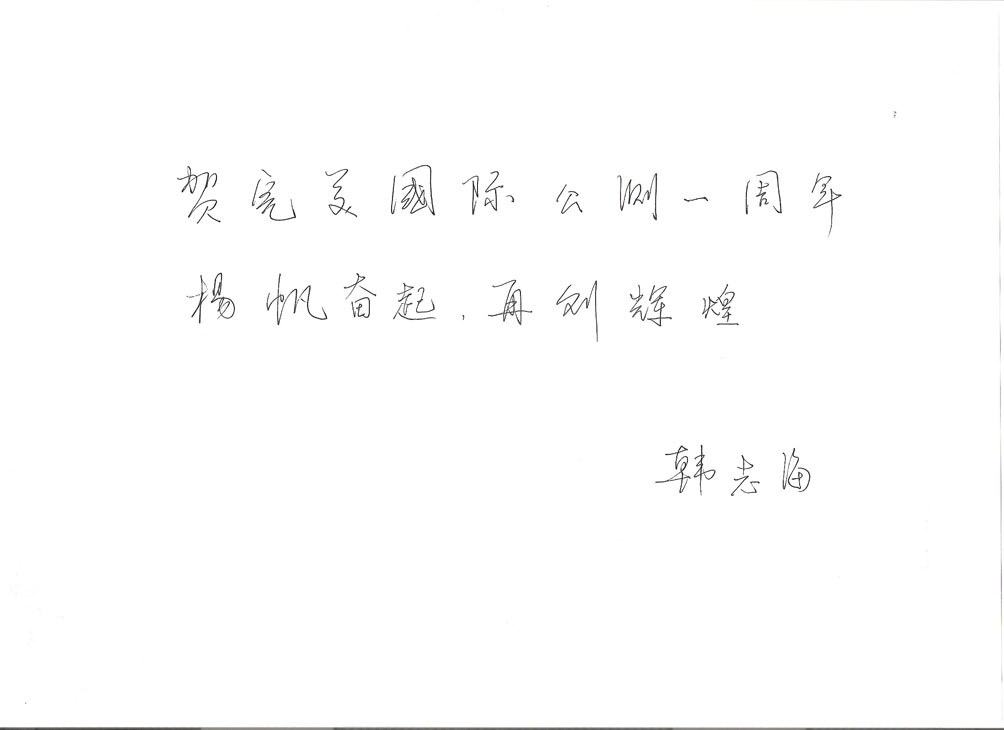 贺完美國际公测一周年
杨帆奋起,再创辉煌
韩志海